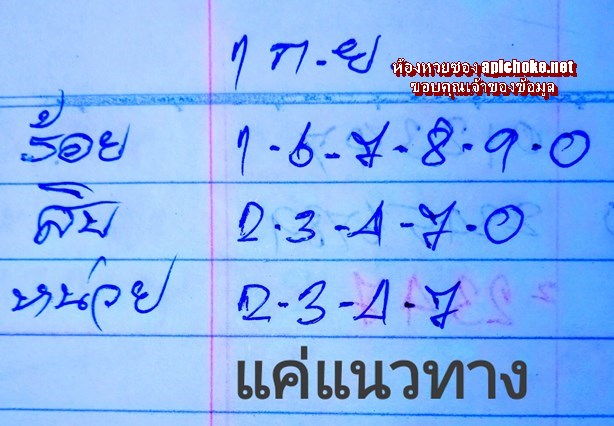 1 ก.ย
ห้องหวยซอง apichoke.net
ขอบคุณเจ้าของข้อมูล
ร้อย 1-6-7-8-9-0
สิบ 2-3-4-7-0
หน่วย 2-3-4-7
แค่แนวทาง